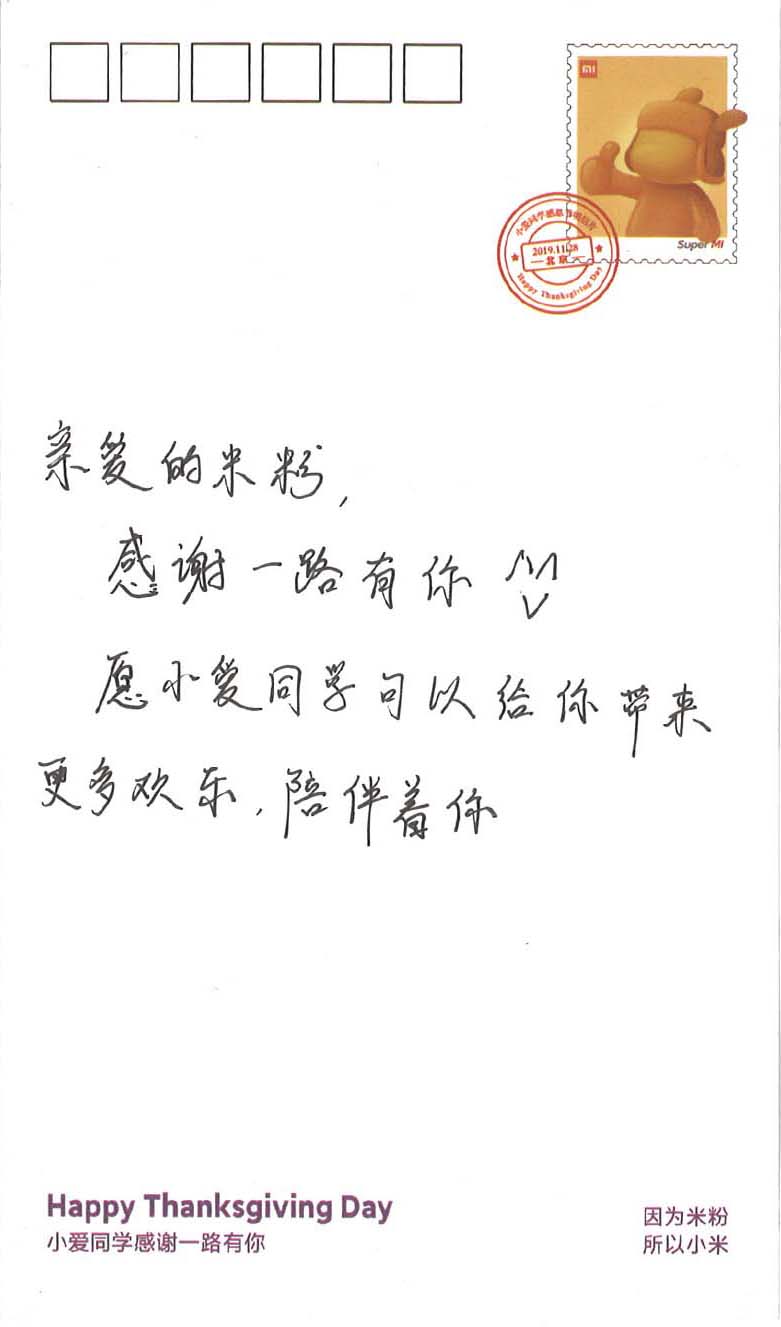 MI
Super MI
小爱同学感恩节明信片
2019.11.28
北京
Happy Thanksgiving Day
亲爱的米粉，
感谢一路有你
愿小爱同学可以给你带来
更多欢乐，陪伴着你
Happy Thanksgiving Day
小爱同学感谢一路有你
因为米粉
所以小米